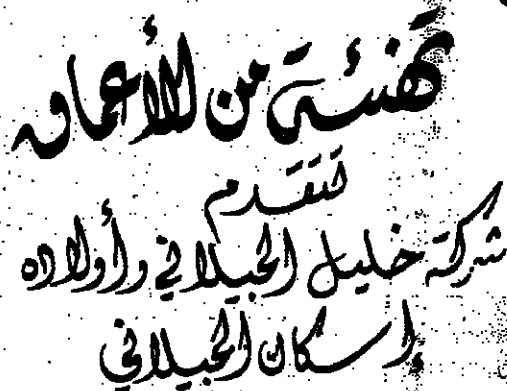 تهنئة من الأعماق
تتقدم
شركة خليل الجيلاني وأولاده
إسكان الجيلاني